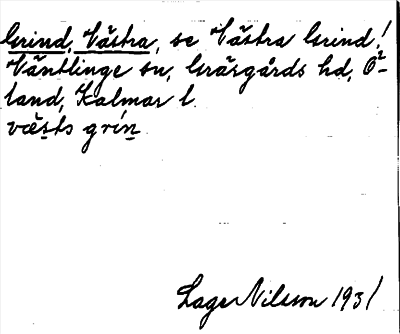 Grind, Västra, se Västra Grind!
Väntlinge sn, Gräsgårds hd, Ö-
land, Kalmar l.
væsts grín
Lage Nilsson 1931